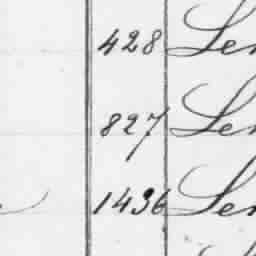 428 Ler
827 Ler
1436 Ler